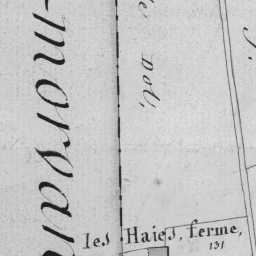 -morvan
Dol,
les Haies, ferme,
131